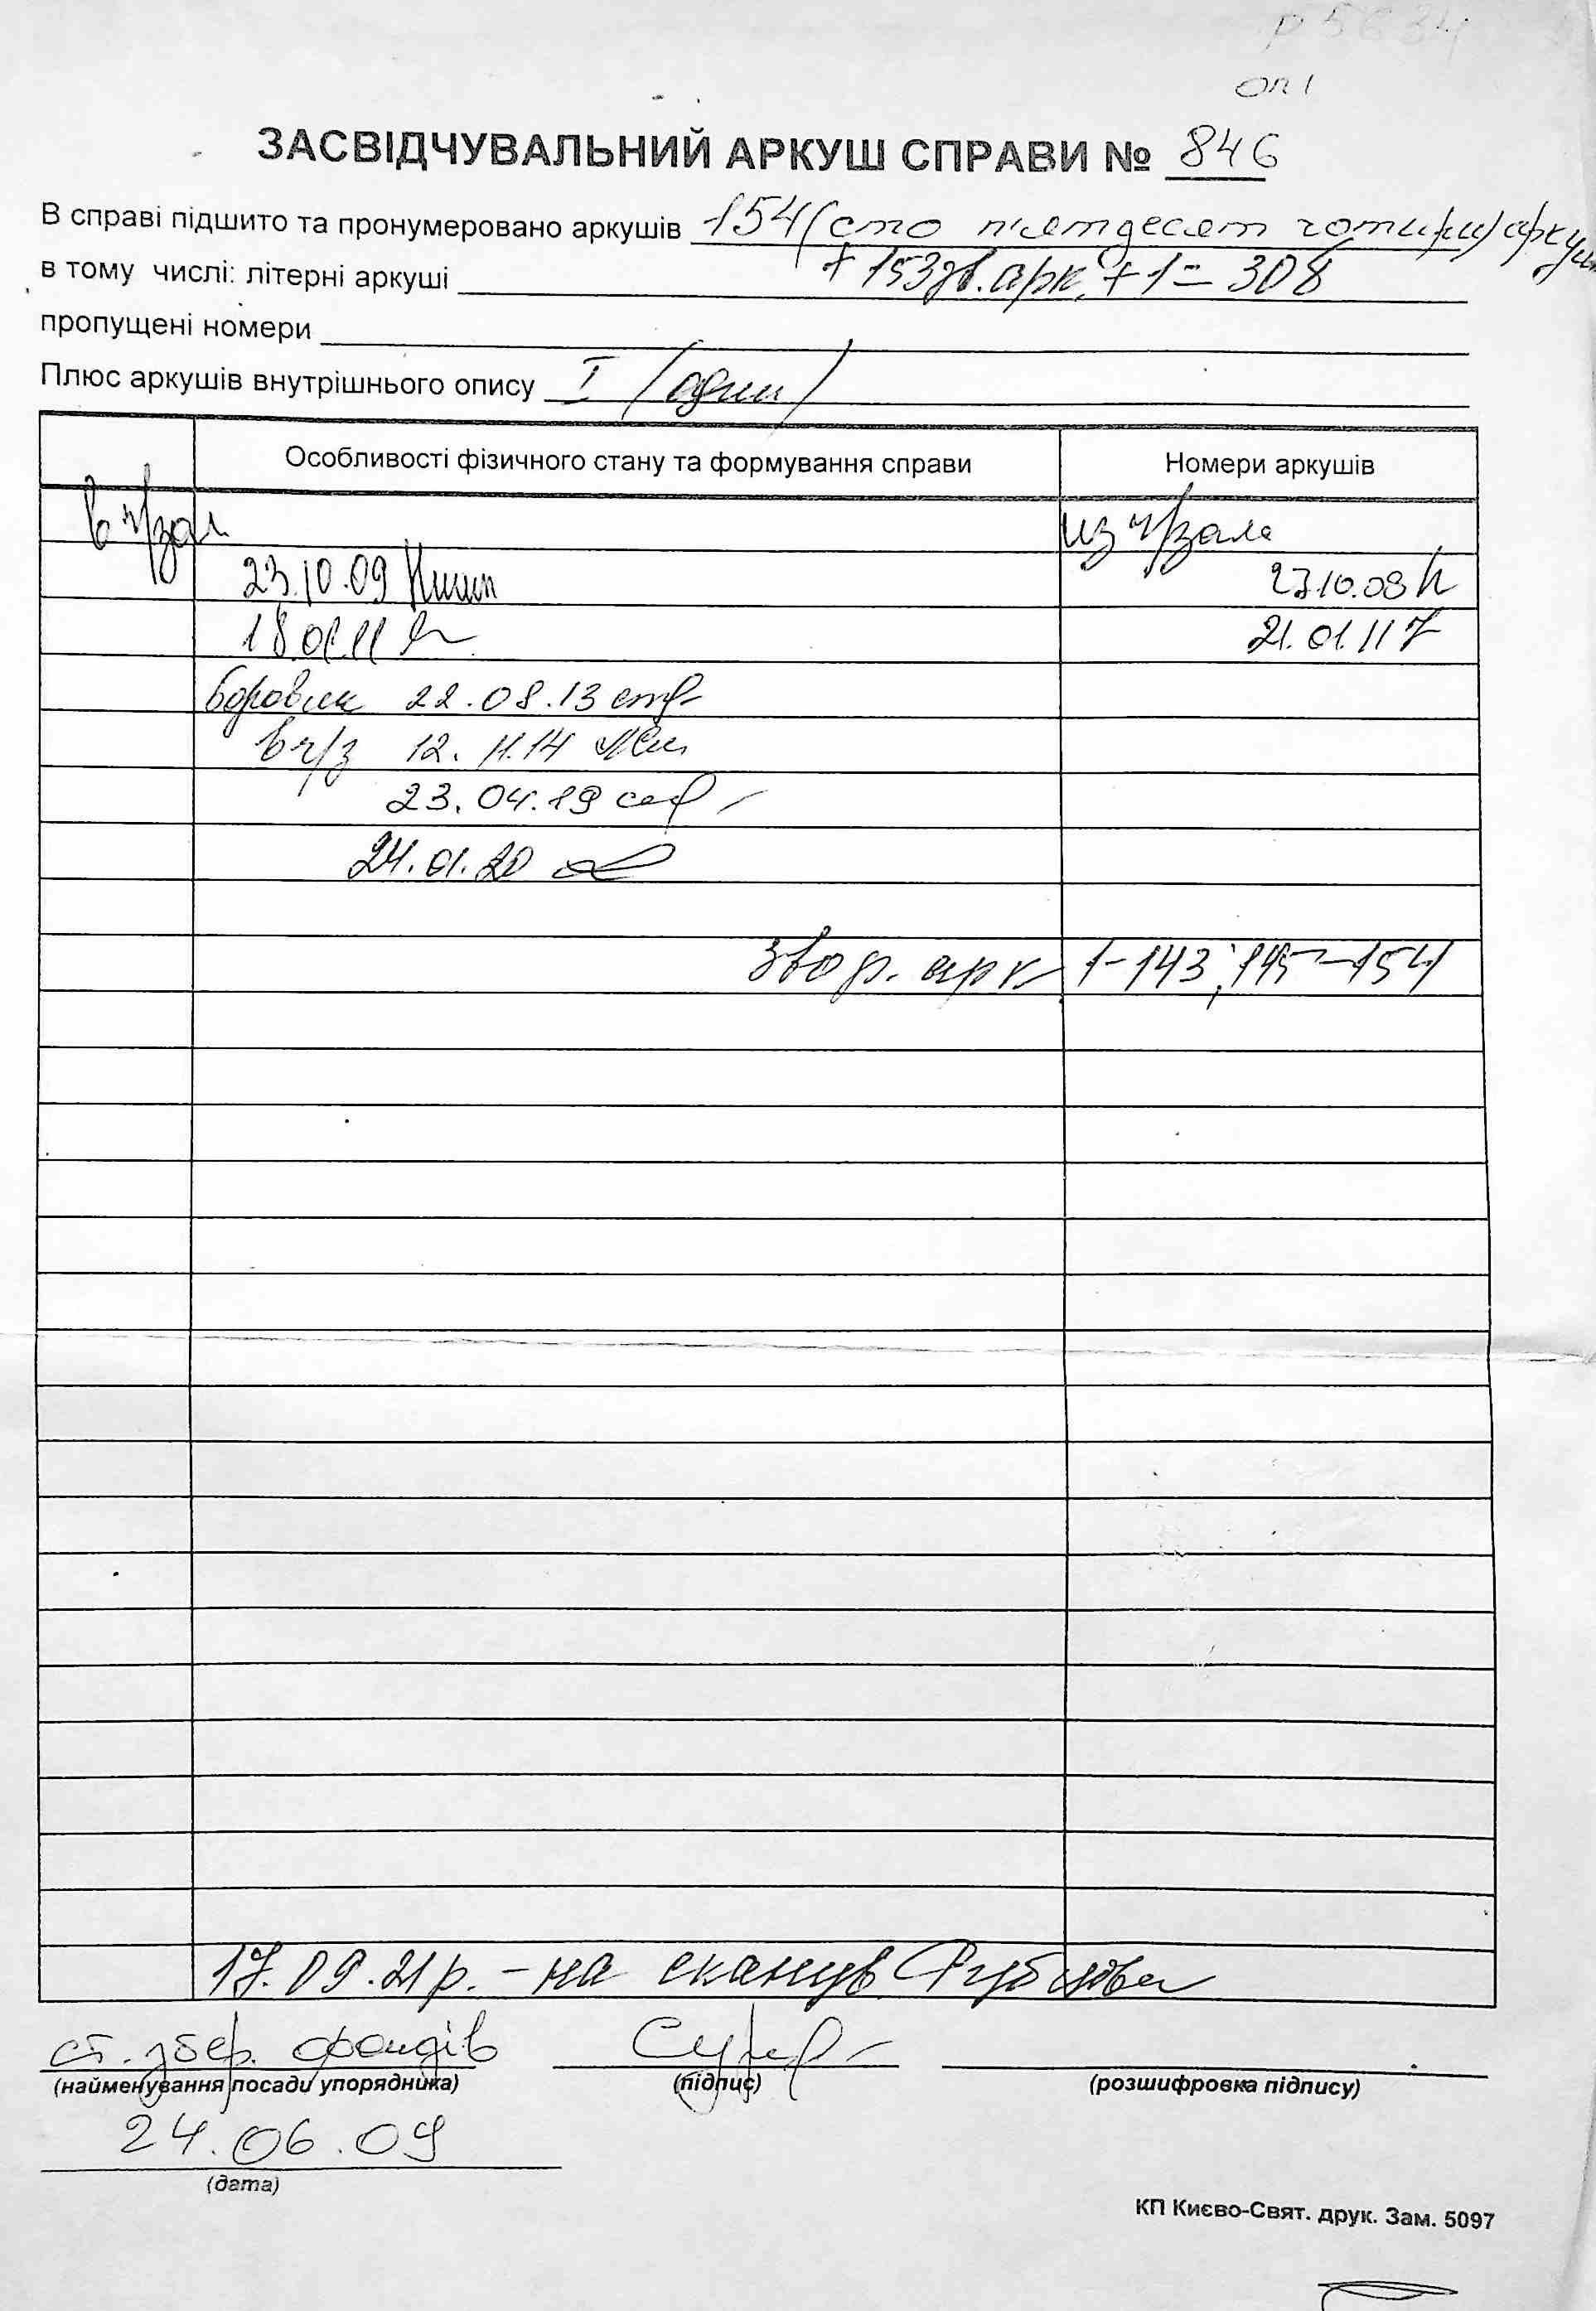 Р 5634
оп 1
ЗАСВІДЧУВАЛЬНИЙ АРКУШ СПРАВИ № 846
В справі підшито та пронумеровано аркушів 154 (сто п'ятдесят чотири) аркуш
+ 153 зв. арк. + 1 = 308
в тому числі: літерні аркуші
пропущені номери
Плюс аркушів внутрішнього опису I (один)
Особливості фізичного стану та формування справи Номери аркушів
в ч/зал из ч/зала
23.10.09 23.10.09
18.01.11 21.01.11
Боровик 22.08.13
в ч/з 12.11.14
23.04.19
24.01.20
звор. арк 1-143; 145-154
17.09.21р. - на сканув.
ст. збер. фондів
(найменування посади упорядника) (підпис) (розшифровка підпису)
24.06.09
(дата)
КП Києво-Свят. друк. Зам. 5097